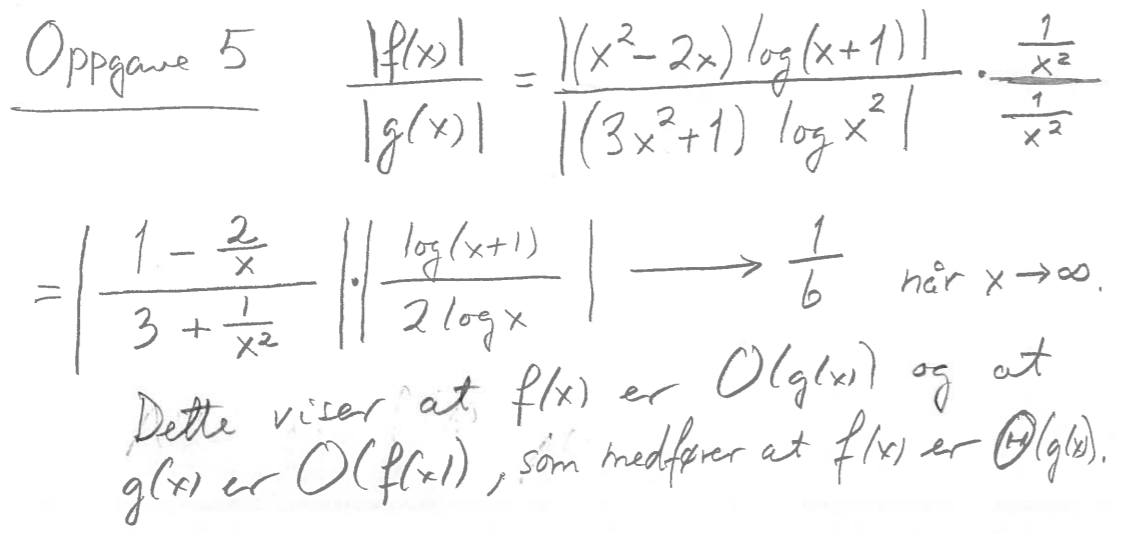 Oppgave 5 |f(x)| / |g(x)| = |(x²-2x) log(x+1)| / |(3x²+1) log x²| · (1/x²) / (1/x²)
= | (1 - 2/x) / (3 + 1/x²) | · | log(x+1) / (2 log x) | ⟶ 1/6 når x → ∞.
Dette viser at f(x) er O(g(x)) og at
g(x) er O(f(x)), som medfører at f(x) er Θ(g(x)).